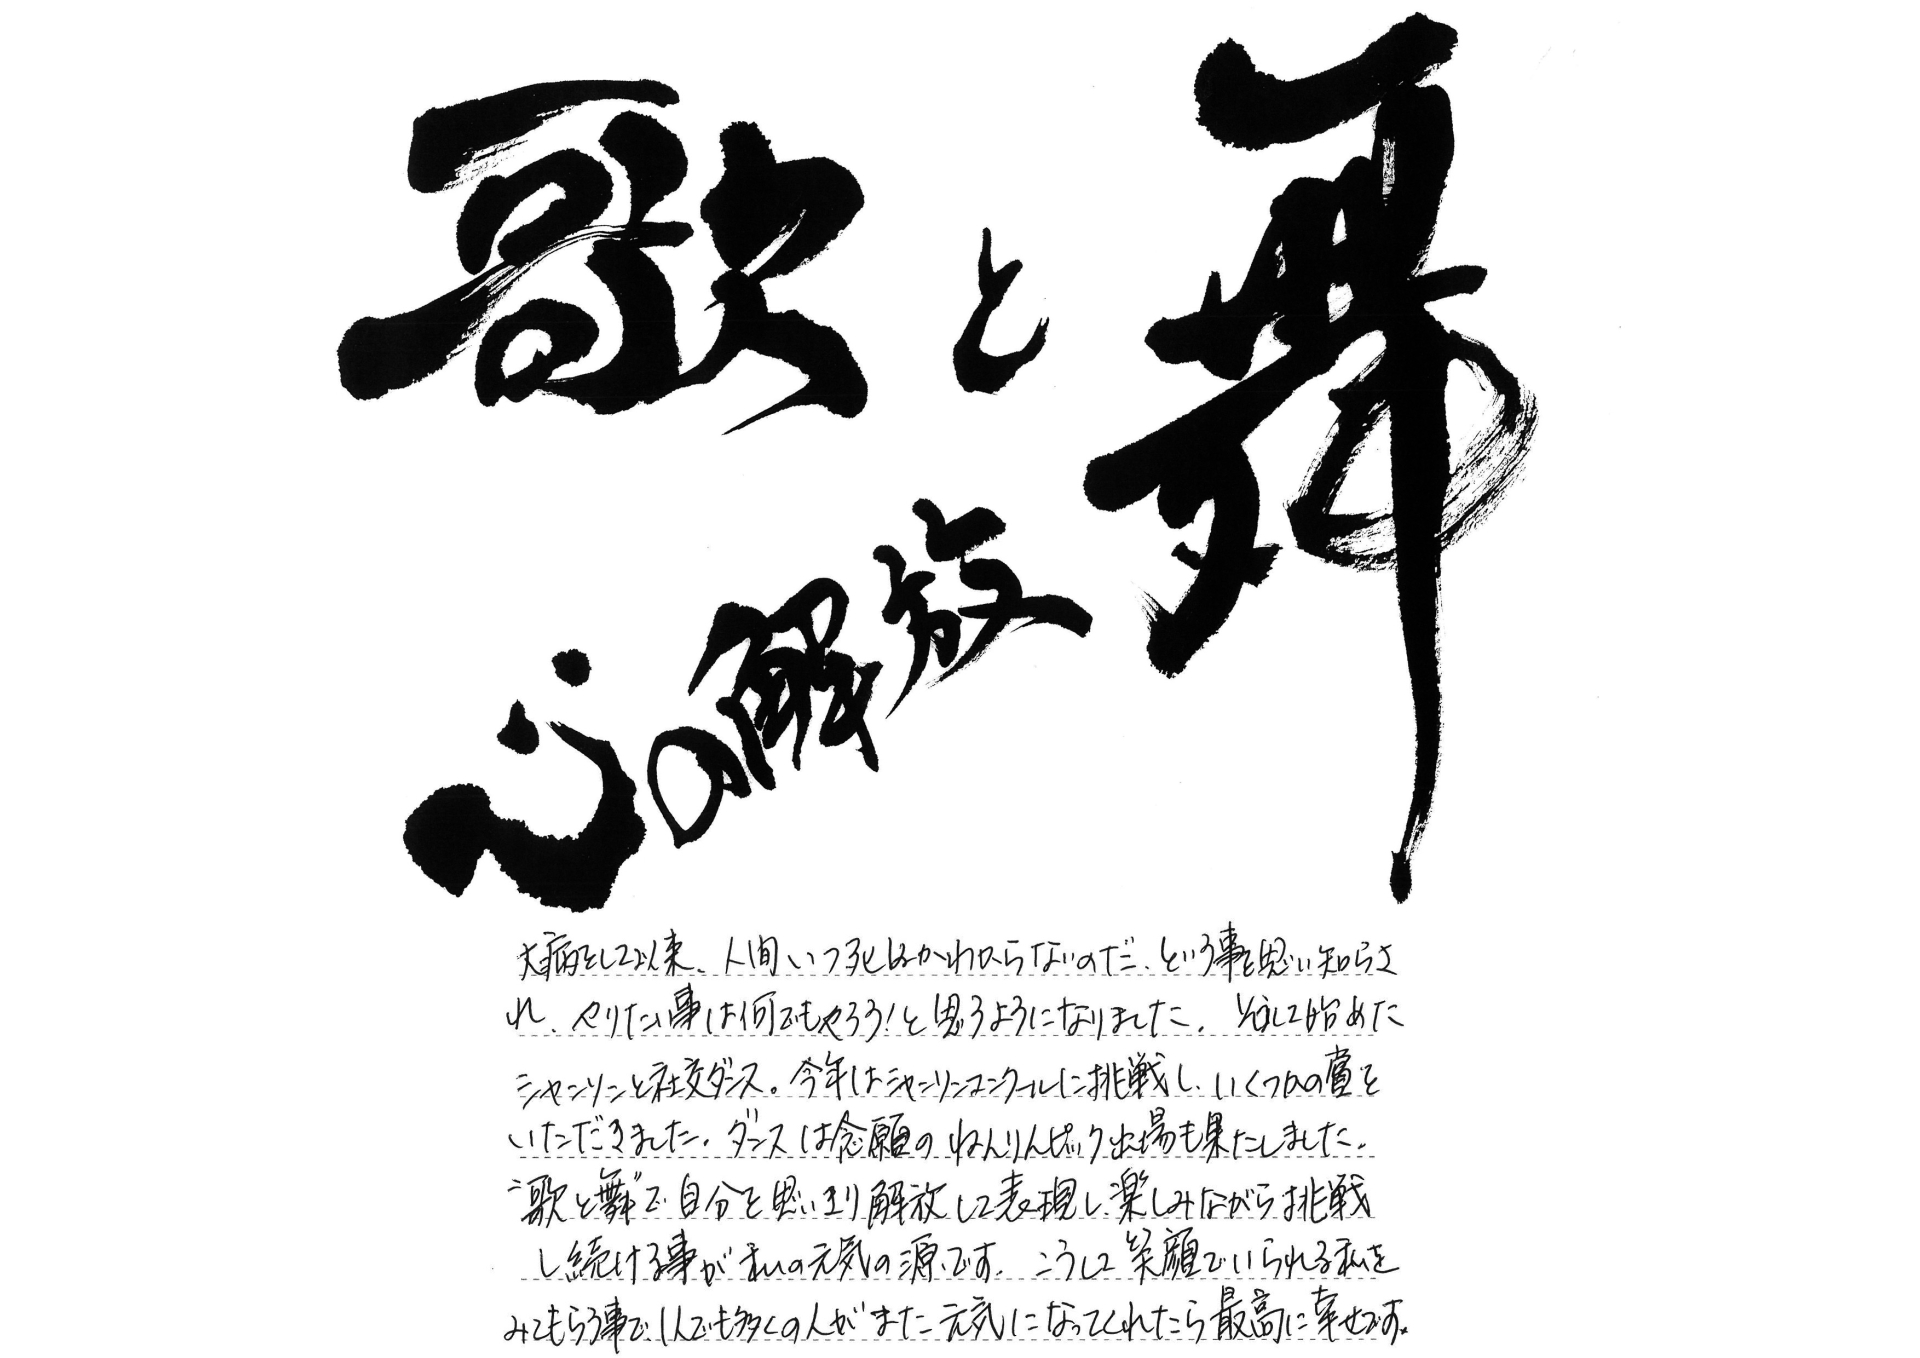 歌と舞
心の解放
大病をして以来、人間いつ死ぬかわからないのだ、という事を思い知らさ
れ、やりたい事は何でもやろう!と思うようになりました。そして始めた
シャンソンと社交ダンス。今年はシャンソンコンクールに挑戦し、いくつかの賞を
いただきました。ダンスは念願のねんりんピック出場も果たしました。
"歌と舞"で自分を思いきり解放して表現し、楽しみながら挑戦
し続ける事が私の元気の源です。こうして笑顔でいられる私を
みてもらう事で、1人でも多くの人がまた元気になってくれたら最高に幸せです。